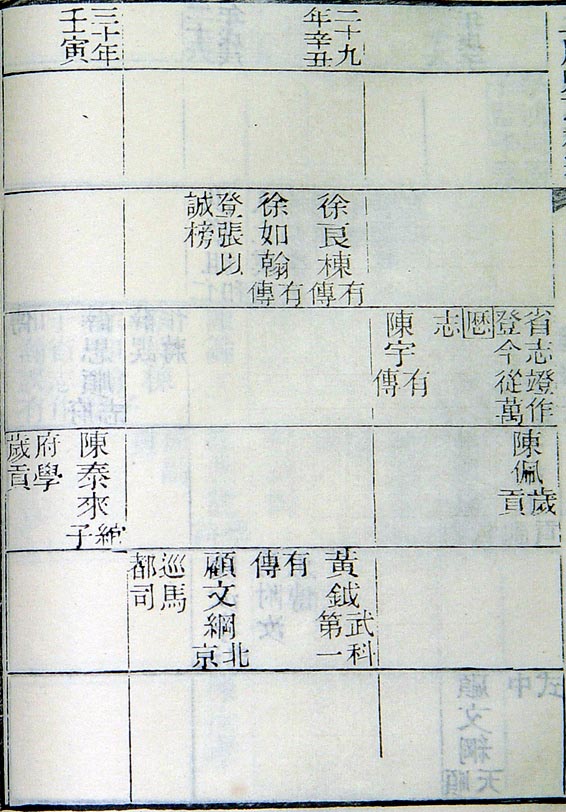 省志證作
登今從萬
厯志
陳宇有傳
陳佩歲貢
二十九
年辛丑
徐良棟有傳
徐如翰有傳
登張以
誠榜
黃鉞武科第一
有傳
顧文綱北京
巡馬
都司
三十年
壬寅
陳泰來綰子
府學
歲貢